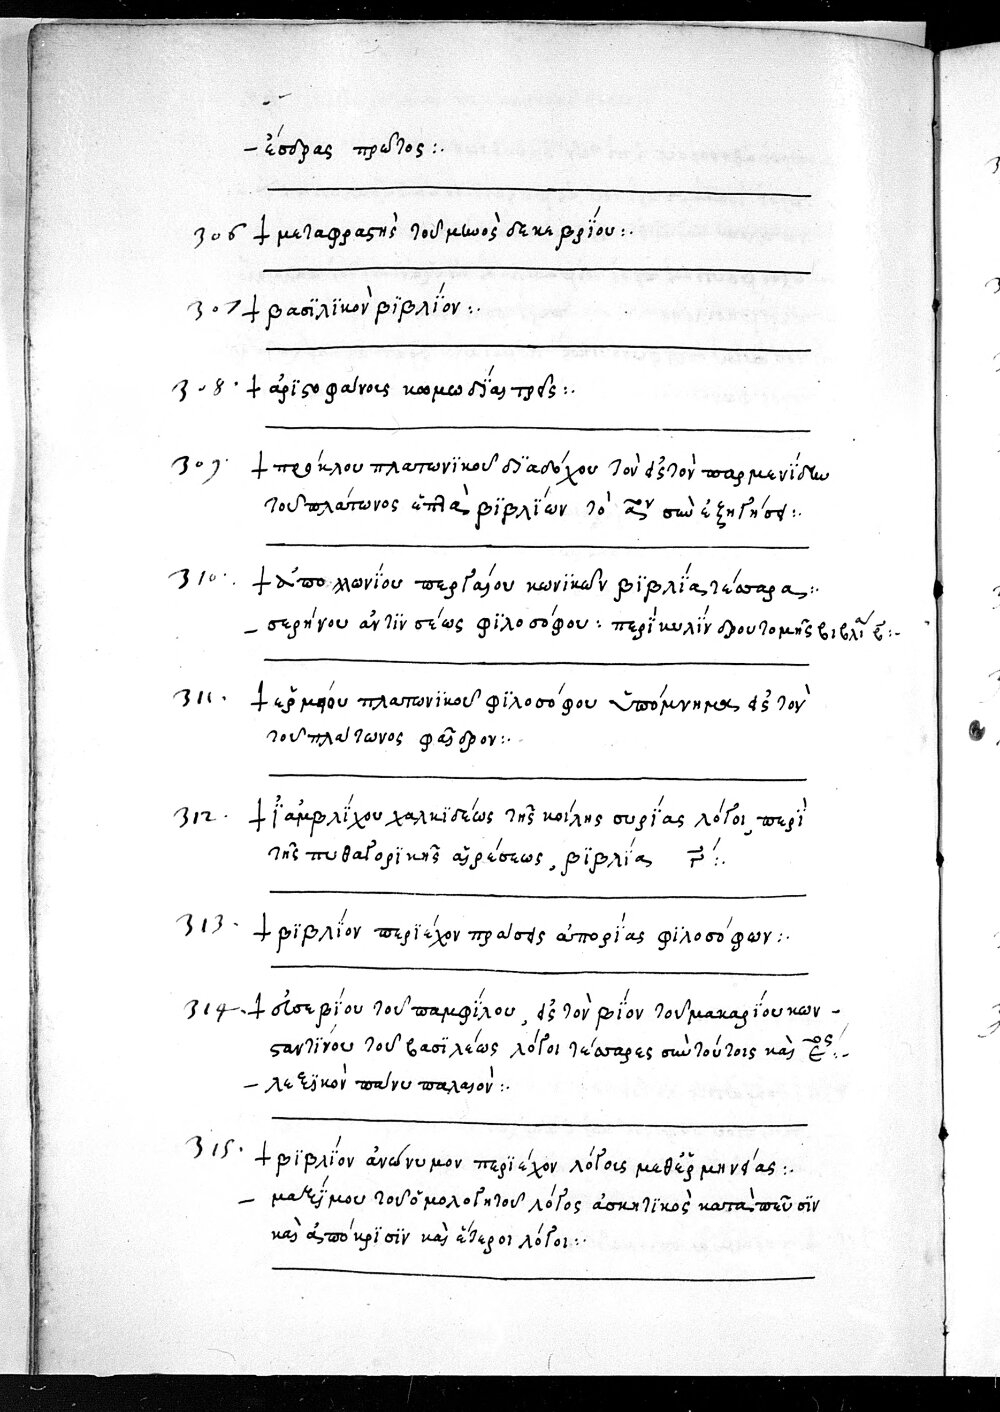 – ἔσδρας πρῶτος :·
306 † μεταφραστὴς τοῦ μηνὸς δεκεβρΐου :·
307 † βασϊλϊκὸν βϊβλΐον :·
308 · † ἀρϊστοφάνους κωμωδΐαι τρεῖς :·
309 · † πρόκλου πλατωνϊκοῦ δϊαδόχου τῶν εἰς τὸν παρμενΐδην
τοῦ πλάτωνος ἑπτὰ βϊβλΐων τὸ αον σὺν ἐξηγήσει :·
310 · † ἀπολλωνΐου περγαίου κωνϊκῶν βϊβλΐα τέσσαρα :·
– σερήνου ἀντϊνσέως φϊλοσόφου : περὶ κυλΐνδρου τομῆς βιβλΐ β :·
311 · † ἑρμείου πλατωνϊκοῦ φϊλοσόφου ὑπόμνημα εἰς τὸν
τοῦ πλάτωνος φαῖδρον :·
312 · † ἰαμβλΐχου χαλκϊδέως τῆς κοίλης συρΐας λόγοι, περὶ
τῆς πυθαγορϊκῆς αἱρέσεως, βϊβλΐα :·
313 · † βϊβλΐον περϊέχον πράσεις ἀπορΐας φϊλοσόφων :·
314 · † εὐσεβΐου τοῦ παμφΐλου, εἰς τὸν βΐον τοῦ μακαρΐου κων -
σταντΐνου τοῦ βασϊλέως λόγοι τέσσαρες σὺν τούτοις καὶ εος :·
– λεξϊκὸν πάνυ παλαιὸν :·
315 · † βϊβλΐον ἀνώνυμον περϊέχον λόγους μεθ' ἑρμηνείας :·
– μαξΐμου τοῦ ὁμολογητοῦ λόγος ἀσκητϊκὸς κατὰ πεῦσϊν
καὶ ἀπόκρϊσϊν καὶ ἕτεροι λόγοι :·